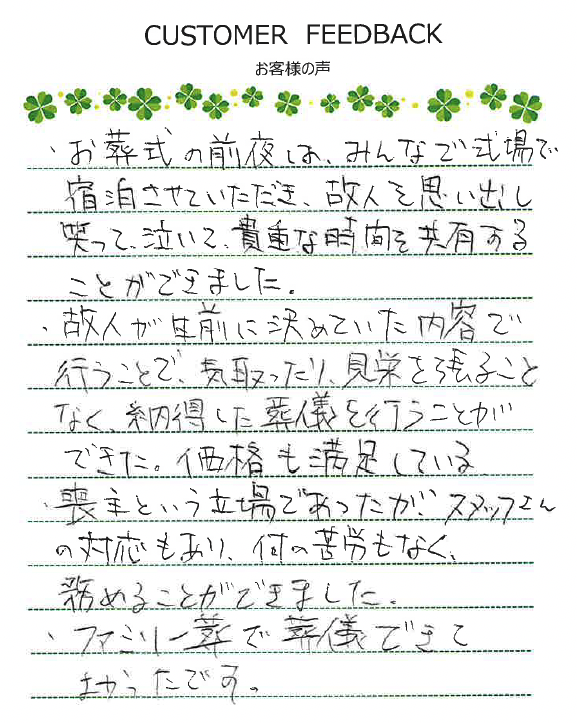 CUSTOMER FEEDBACK
お客様の声
・お葬式の前夜は、みんなで式場で
宿泊させていただき、故人を思い出し
笑って、泣いて、貴重な時間を共有する
ことができました。
・故人が生前に決めていた内容で
行うことで、気取ったり、見栄を張ること
なく、納得した葬儀を行うことが
できた。価格も満足している
・喪主という立場であったが、スタッフさん
の対応もあり、何の苦労もなく、
務めることができました。
・ファミリー葬で葬儀できて
よかったです。